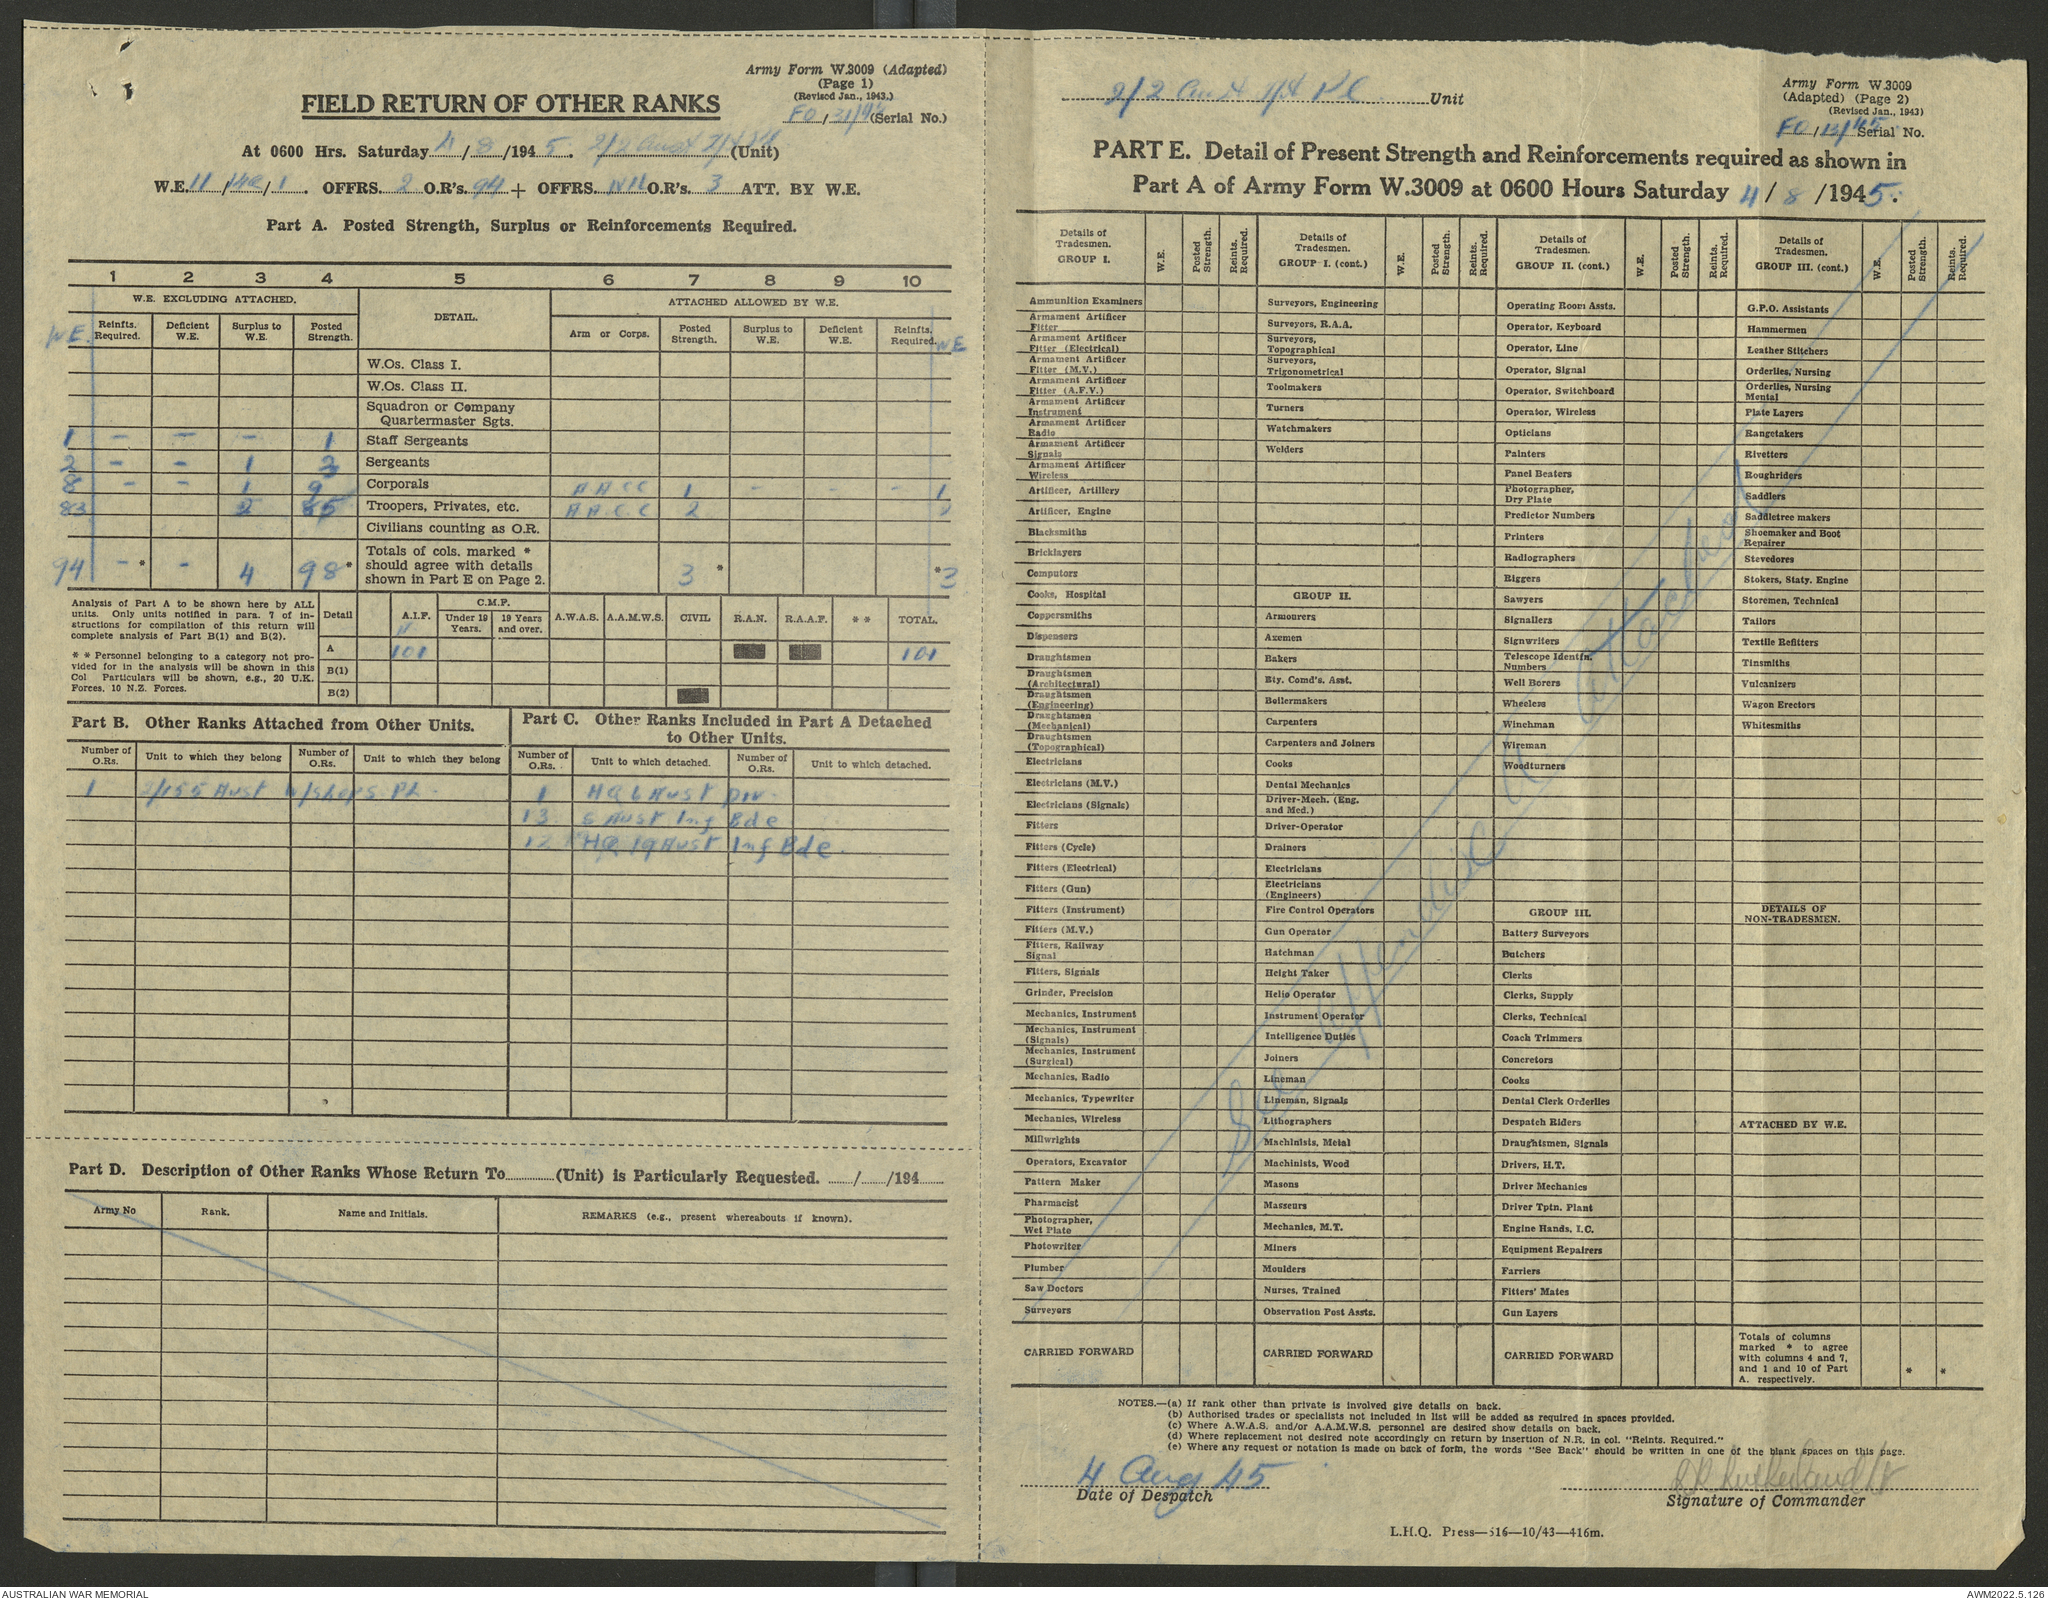 Army Form W.3009 (Adapted)
(Page 1)
(Revised Jan., 1943.)
FIELD RETURN OF OTHER RANKS
FO/31/45 (Serial No.)
At 0600 Hrs. Saturday 4/8/1945. 2/2 Aust (Unit)
W.E. 11/ /1. OFFRS. 2 O.R's. 94 + OFFRS. NIL O.R's. 3 ATT. BY W.E.
Part A. Posted Strength, Surplus or Reinforcements Required.
1 2 3 4 5 6 7 8 9 10
W.E. EXCLUDING ATTACHED. DETAIL. ATTACHED ALLOWED BY W.E.
W.E. Reinfts. Required. Deficient W.E. Surplus to W.E. Posted Strength. Arm or Corps. Posted Strength. Surplus to W.E. Deficient W.E. Reinfts. Required. WE
W.Os. Class I.
W.Os. Class II.
Squadron or Company
Quartermaster Sgts.
1 - - - 1 Staff Sergeants
2 - - 1 3 Sergeants
8 - - 1 9 Corporals AACC 1 - - - 1
83 2 85 Troopers, Privates, etc. AACC 2 2
Civilians counting as O.R.
Totals of cols. marked *
should agree with details
shown in Part E on Page 2.
94 - * - 4 98 * 3 * * 3
Analysis of Part A to be shown here by ALL
units. Only units notified in para. 7 of in-
structions for compilation of this return will
complete analysis of Part B(1) and B(2).
* * Personnel belonging to a category not pro-
vided for in the analysis will be shown in this
Col Particulars will be shown, e.g., 20 U.K.
Forces, 10 N.Z. Forces.
Detail A.I.F. C.M.F. Under 19 Years. 19 Years and over. A.W.A.S. A.A.M.W.S. CIVIL R.A.N. R.A.A.F. * * TOTAL.
A 101 101
B(1)
B(2)
Part B. Other Ranks Attached from Other Units.
Part C. Other Ranks Included in Part A Detached
to Other Units.
Number of O.Rs. Unit to which they belong Number of O.Rs. Unit to which they belong Number of O.Rs. Unit to which detached. Number of O.Rs. Unit to which detached.
1 2/155 Aust W/Shops PL. 1 HQ 6 Aust Div.
13 6 Aust Inf Bde
12 HQ 19 Aust Inf Bde.
Part D. Description of Other Ranks Whose Return To (Unit) is Particularly Requested. / /194
Army No Rank. Name and Initials. REMARKS (e.g., present whereabouts if known).
2/2 Aust Pl Unit
Army Form W.3009
(Adapted) (Page 2)
(Revised Jan., 1943)
FO/ /45 Serial No.
PART E. Detail of Present Strength and Reinforcements required as shown in
Part A of Army Form W.3009 at 0600 Hours Saturday 4/8/1945.
Details of Tradesmen. GROUP I. W.E. Posted Strength. Reints. Required.
Ammunition Examiners
Armament Artificer Fitter
Armament Artificer Fitter (Electrical)
Armament Artificer Fitter (M.V.)
Armament Artificer Fitter (A.F.V.)
Armament Artificer Instrument
Armament Artificer Radio
Armament Artificer Signals
Armament Artificer Wireless
Artificer, Artillery
Artificer, Engine
Blacksmiths
Bricklayers
Computors
Cooks, Hospital
Coppersmiths
Dispensers
Draughtsmen
Draughtsmen (Architectural)
Draughtsmen (Engineering)
Draughtsmen (Mechanical)
Draughtsmen (Topographical)
Electricians
Electricians (M.V.)
Electricians (Signals)
Fitters
Fitters (Cycle)
Fitters (Electrical)
Fitters (Gun)
Fitters (Instrument)
Fitters (M.V.)
Fitters, Railway Signal
Fitters, Signals
Grinder, Precision
Mechanics, Instrument
Mechanics, Instrument (Signals)
Mechanics, Instrument (Surgical)
Mechanics, Radio
Mechanics, Typewriter
Mechanics, Wireless
Millwrights
Operators, Excavator
Pattern Maker
Pharmacist
Photographer, Wet Plate
Photowriter
Plumber
Saw Doctors
Surveyors
CARRIED FORWARD
Details of Tradesmen. GROUP I. (cont.) W.E. Posted Strength. Reints. Required.
Surveyors, Engineering
Surveyors, R.A.A.
Surveyors, Topographical
Surveyors, Trigonometrical
Toolmakers
Turners
Watchmakers
Welders
GROUP II.
Armourers
Axemen
Bakers
Bty. Comd's. Asst.
Boilermakers
Carpenters
Carpenters and Joiners
Cooks
Dental Mechanics
Driver-Mech. (Eng. and Med.)
Driver-Operator
Drainers
Electricians
Electricians (Engineers)
Fire Control Operators
Gun Operator
Hatchman
Height Taker
Helio Operator
Instrument Operator
Intelligence Duties
Joiners
Lineman
Lineman, Signals
Lithographers
Machinists, Metal
Machinists, Wood
Masons
Masseurs
Mechanics, M.T.
Miners
Moulders
Nurses, Trained
Observation Post Assts.
CARRIED FORWARD
Details of Tradesmen. GROUP II. (cont.) W.E. Posted Strength. Reints. Required.
Operating Room Assts.
Operator, Keyboard
Operator, Line
Operator, Signal
Operator, Switchboard
Operator, Wireless
Opticians
Painters
Panel Beaters
Photographer, Dry Plate
Predictor Numbers
Printers
Radiographers
Riggers
Sawyers
Signallers
Signwriters
Telescope Identfn. Numbers
Well Borers
Wheelers
Winchman
Wireman
Woodturners
GROUP III.
Battery Surveyors
Butchers
Clerks
Clerks, Supply
Clerks, Technical
Coach Trimmers
Concretors
Cooks
Dental Clerk Orderlies
Despatch Riders
Draughtsmen, Signals
Drivers, H.T.
Driver Mechanics
Driver Tptn. Plant
Engine Hands, I.C.
Equipment Repairers
Farriers
Fitters' Mates
Gun Layers
CARRIED FORWARD
Details of Tradesmen. GROUP III. (cont.) W.E. Posted Strength. Reints. Required.
G.P.O. Assistants
Hammermen
Leather Stitchers
Orderlies, Nursing
Orderlies, Nursing Mental
Plate Layers
Rangetakers
Rivetters
Roughriders
Saddlers
Saddletree makers
Shoemaker and Boot Repairer
Stevedores
Stokers, Staty. Engine
Storemen, Technical
Tailors
Textile Refitters
Tinsmiths
Vulcanizers
Wagon Erectors
Whitesmiths
DETAILS OF NON-TRADESMEN.
ATTACHED BY W.E.
Totals of columns
marked * to agree
with columns 4 and 7,
and 1 and 10 of Part
A. respectively. * *
See Appendix A attached
NOTES.—(a) If rank other than private is involved give details on back.
(b) Authorised trades or specialists not included in list will be added as required in spaces provided.
(c) Where A.W.A.S. and/or A.A.M.W.S. personnel are desired show details on back.
(d) Where replacement not desired note accordingly on return by insertion of N.R. in col. "Reints. Required."
(e) Where any request or notation is made on back of form, the words "See Back" should be written in one of the blank spaces on this page.
4 Aug 45
Date of Despatch
RR Rutherland Lt
Signature of Commander
L.H.Q. Press—516—10/43—416m.
AUSTRALIAN WAR MEMORIAL
AWM2022.5.126